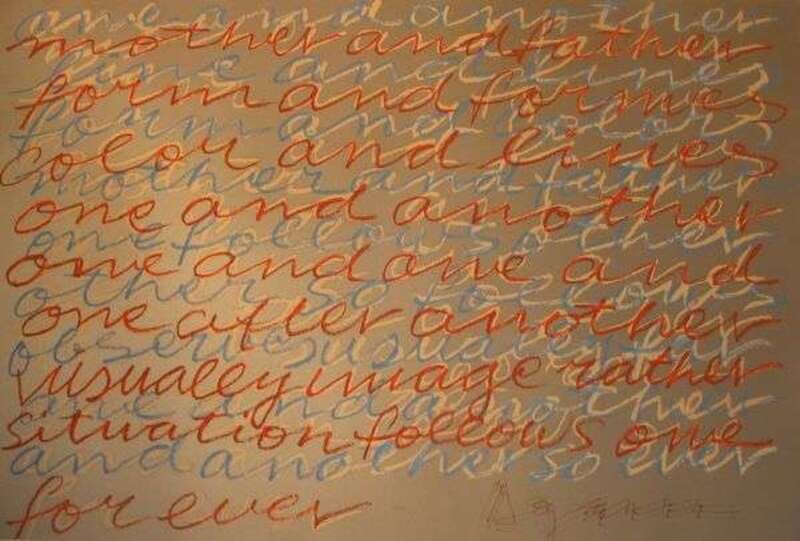 one and another
mother and father
line and lines
form and formes
form and colors
color and lines
mother and father
one and another
one follows other
one and one and
other so follows
one after another
observe usually
visually image rather
one and another
situation follows one
and another so ever
forever